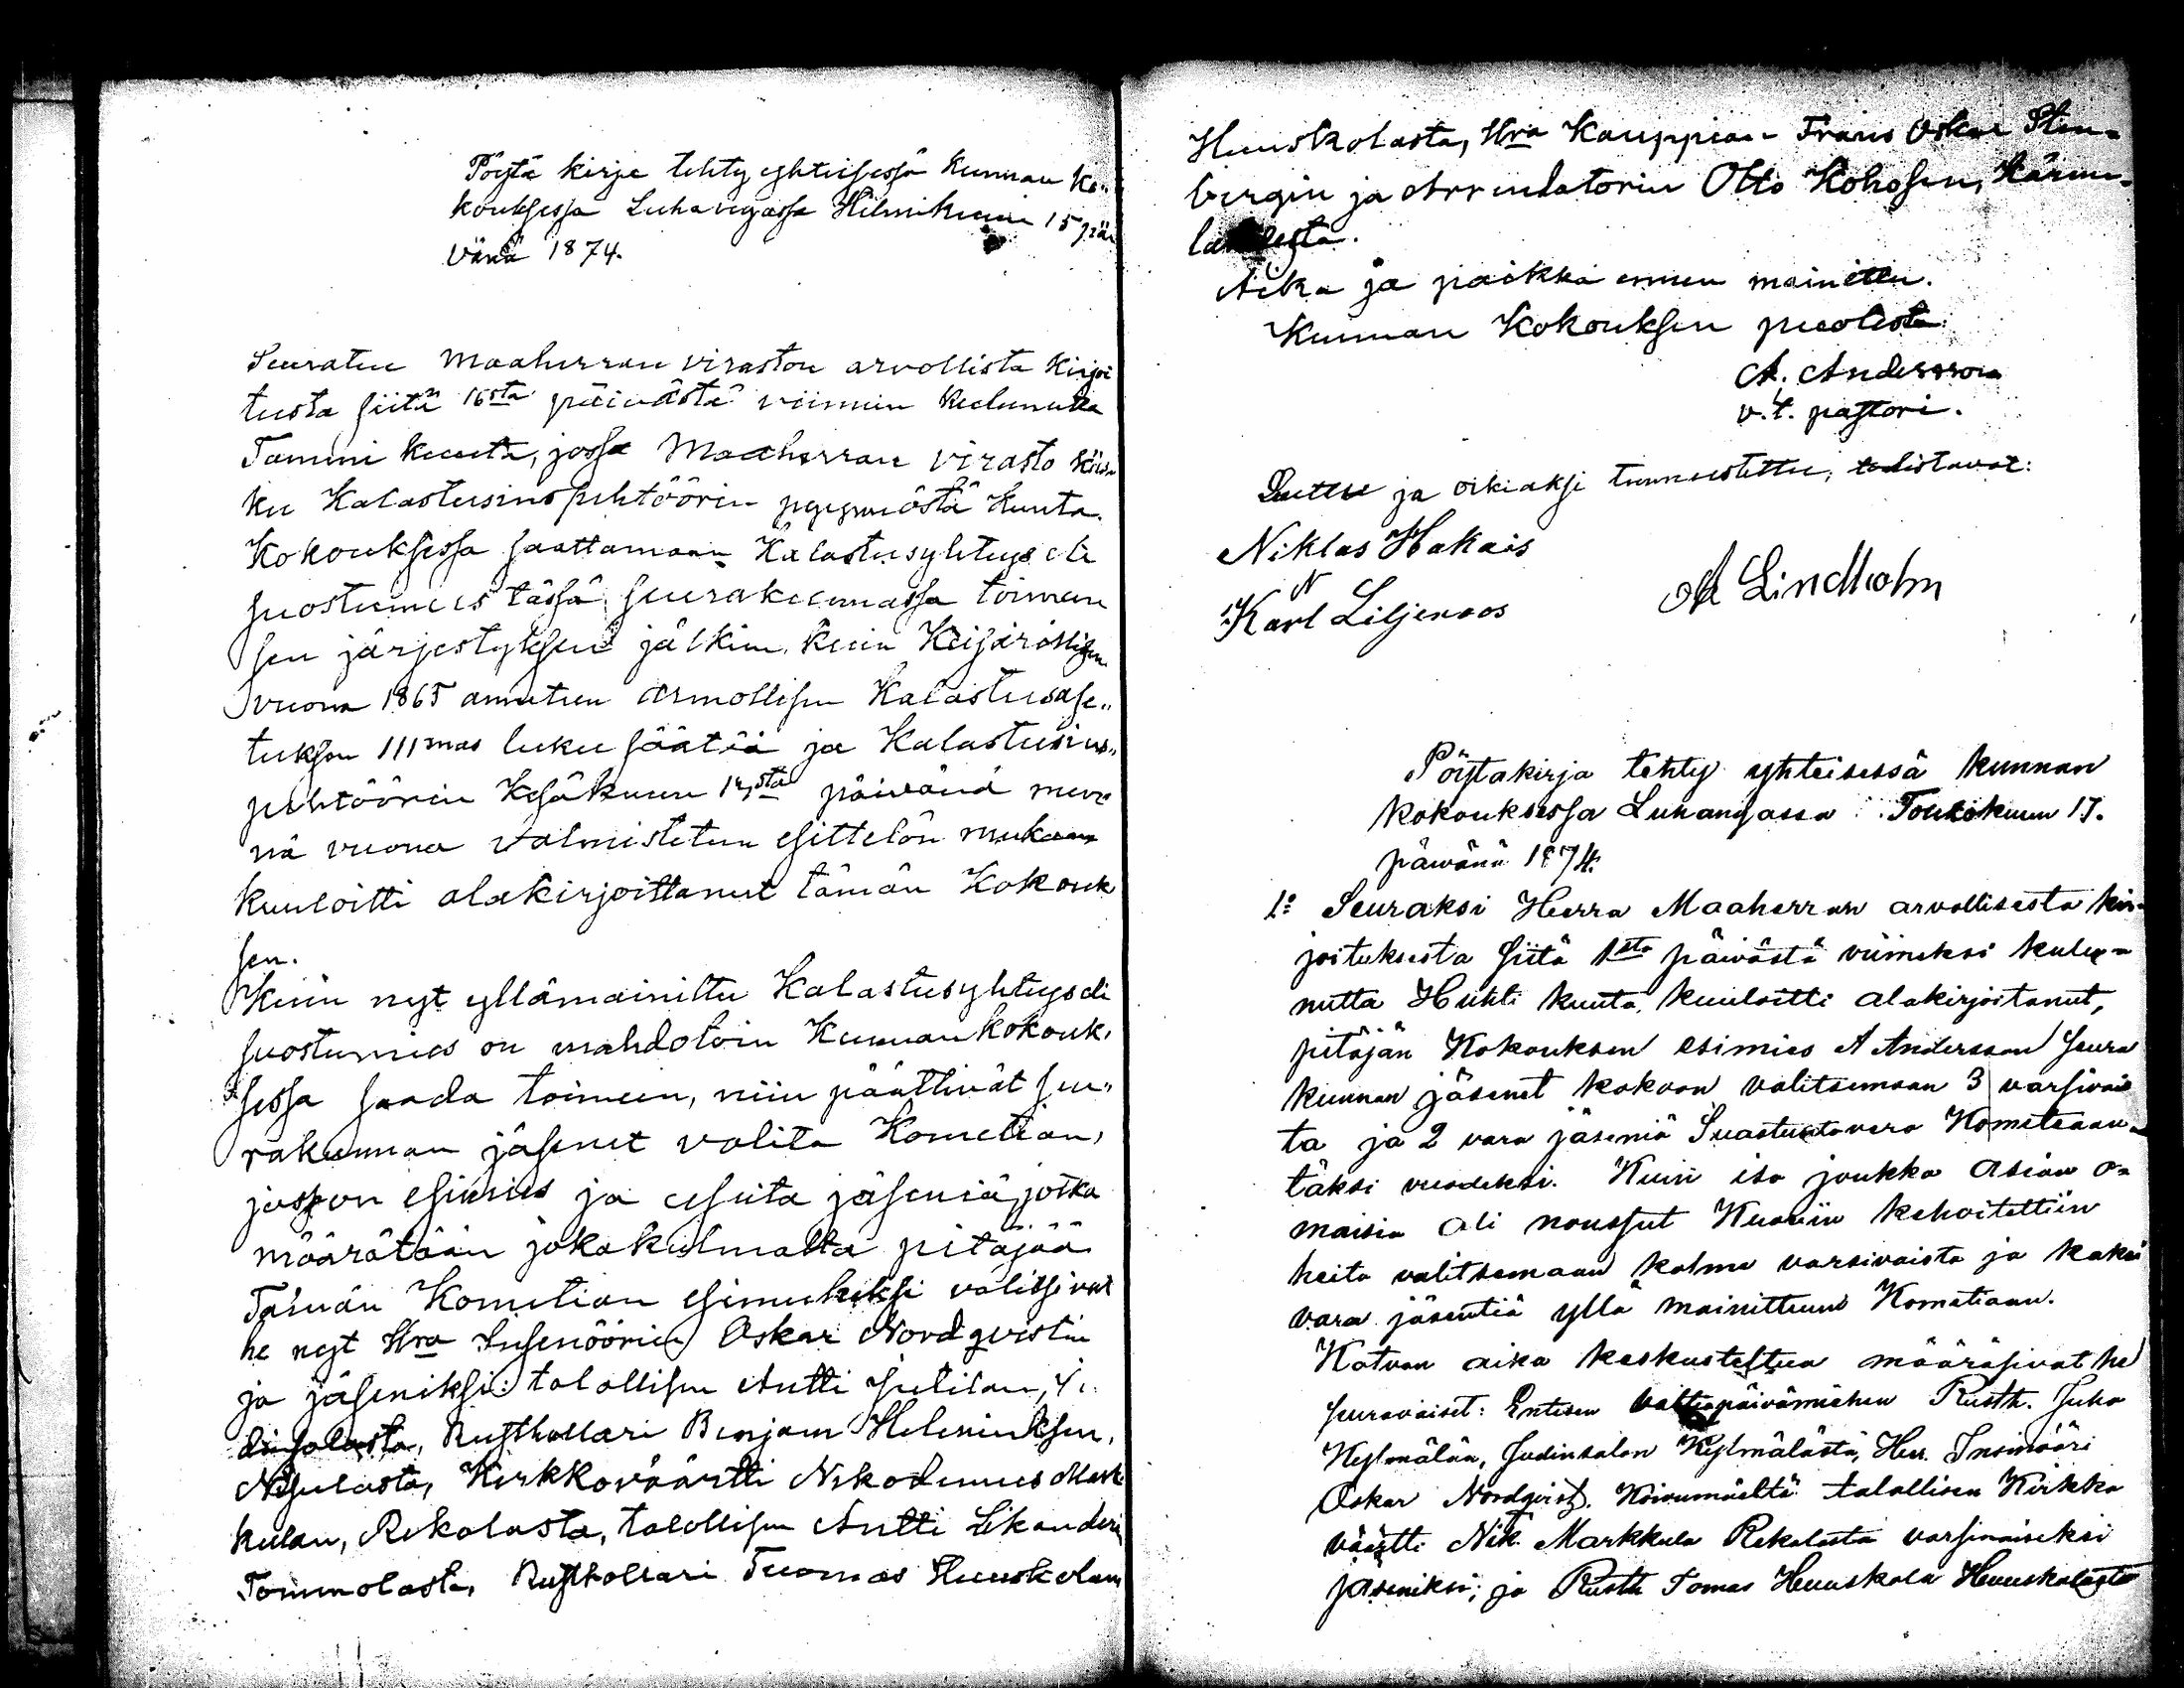 Pöytä kirje tehty yhteisessä Kunnan Ko„
kouksessa Luhangassa Helmikuun 15 päi
vänä 1874.
Seuraten Maaherran viraston arvollista Kirjoi
tusta siitä 16sta päivästä viimein kulunutta
Tammi kuuta, jossa Maaherran virasto käs
ku Kalastusinspehtöörin pyynnöstä Kunta
Kokouksessa saattamaan Kalastusyhteys eli
suostumus tässä seurakunnassa toimeen
sen järjestyksen jälkeen, kuin Keisarillisen
vuonna 1865 annetun armollisen Kalastusase„
tuksen IIImas luku säätää ja Kalastusins„
pehtöörin Kesäkuun päivänä menn
nä vuonna valmistetun esittelön mukaan
kuuloitti alakirjoittanut tämän Kokouk
sen.
Kuin nyt yllämainittu Kalastusyhteys eli
suostumus on mahdotoin Kunnankokouk„
sessa saada toimeen, niin päättivät seu„
rakunnan jäsenet valita Kometian,
jossa on esimies ja usiita jäseniä, jotka
määrätään joka kulmalta pitäjää
Tämän Kometian esimieheksi valitsivat
he nyt Hra Insenöörin Oskar Nordqvistin
ja jäseniksi: talollisen Antti
Rusthollari Benjam Heleniuksen,
Nisulasta, Kirkkoväärtti Nikodemus Mark
kulan, Rekolasta, talollisen Antti Likanderi
Tommolasta, Rusthollari Tuomas Huuskolan
Huuskolasta, Hra Kauppias Frans Oskar Sten„
bergin ja Arrendatorin Otto Kohosen,
Aika ja paikka ennen mainittu.
Kunnan Kokouksen puolesta:
A. Andersson
v.t. pastori.
Luettu ja oikiaksi tunnustettu, todistavat:
Niklas Hakais
Karl Liljeroos
A Lindholm
Pöytakirja tehty yhteisessä kunnan
kokouksessa Luhangassa Toukokuun 17.
päivänä 1874.
1: Seuraksi Herra Maaherran arvollisesta kir-
joituksesta siitä 1sta päivästä viimeksi kulu-
nutta Huhti kuuta, kuuloitti alakirjoitanut,
pitäjän Kokouksen esimies A Andersson seura
kunnan jäsenet kokoon valitsemaan 3 varsivais
ta ja 2 vara jäseniä Suostuntavero Kometeaan
täksi vuodeksi. Kuin iso joukko asian o-
maisia oli noussut Kuoriin kehoitettiin
heita valitsemaan kolme varsivaista ja kaksi
vara jäsentiä yllä mainittuun Kometiaan.
Kotvan aika keskusteltua määräsivat he
seuravaiset: Entisen valtiopäivämiehen Rusth. Juho
Kylmälän, Judinsalon Kylmälästä, Herr. Insinööri
Oskar Nordqvist, Koivumäeltä talollisen Kirkko
väärtti Nik. Markkula Rekolasta varsinaiseksi
jäseniksi; ja Rusth Tomas Huuskola Huuskolasta